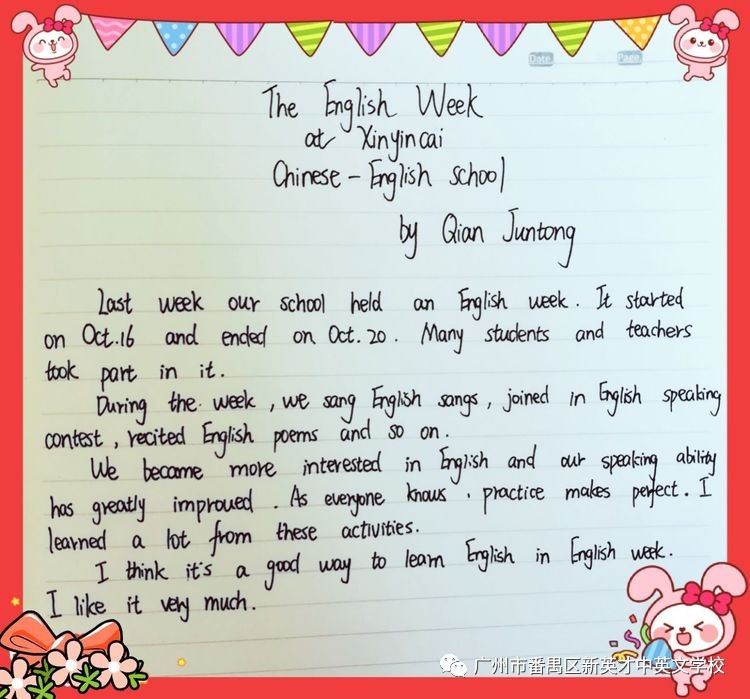 Date
Page
The English Week
at Xinyincai
Chinese - English school
by Qian Juntong
Last week our school held an English week. It started
on Oct.16 and ended on Oct.20. Many students and teachers
took part in it.
During the week, we sang English sangs, joined in English speaking
contest, recited English poems and so on.
We became more interested in English and our speaking ability
has greatly improved. As everyone knows, practice makes perfect. I
learned a lot from these activities.
I think it's a good way to learn English in English week.
I like it very much.
广州市番禺区新英才中英文学校